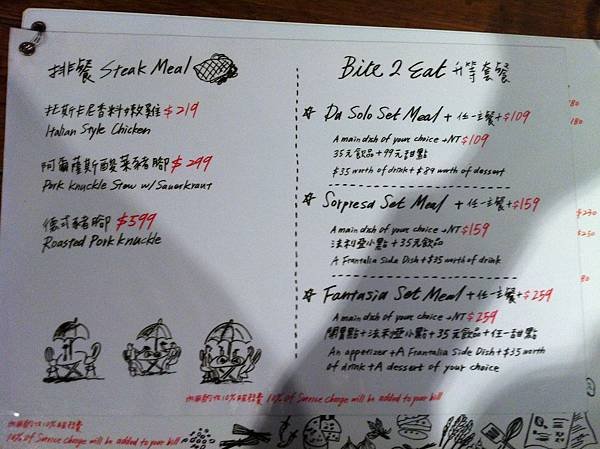 排餐 Steak Meal
托斯卡尼香料嫩雞 $219
Italian Style Chicken
阿爾薩斯酸菜豬腳 $299
Pork Knuckle Stew w/ Sauerkraut
德式豬腳 $599
Roasted Pork Knuckle
Bite 2 Eat 升等套餐
Da Solo Set Meal + 任一主餐 + $109
A main dish of your choice + NT $109
35元飲品 + 99元甜點
$35 worth of drink + $89 worth of dessert
Sorpresa Set Meal + 任一主餐 + $159
A main dish of your choice + NT $159
法利啞小點 + 35元飲品
A Frantalia Side Dish + $35 worth of drink
Fantasia Set Meal + 任一主餐 + $259
A main dish of your choice + NT $259
開胃點 + 法利啞小點 + 35元飲品 + 任一甜點
An appetizer + A Frantalia Side Dish + $35 worth
of drink + A dessert of your choice
10% of Survice charge will be added to your bill
10% of Survice charge will be added to your bill
180
$230
$250